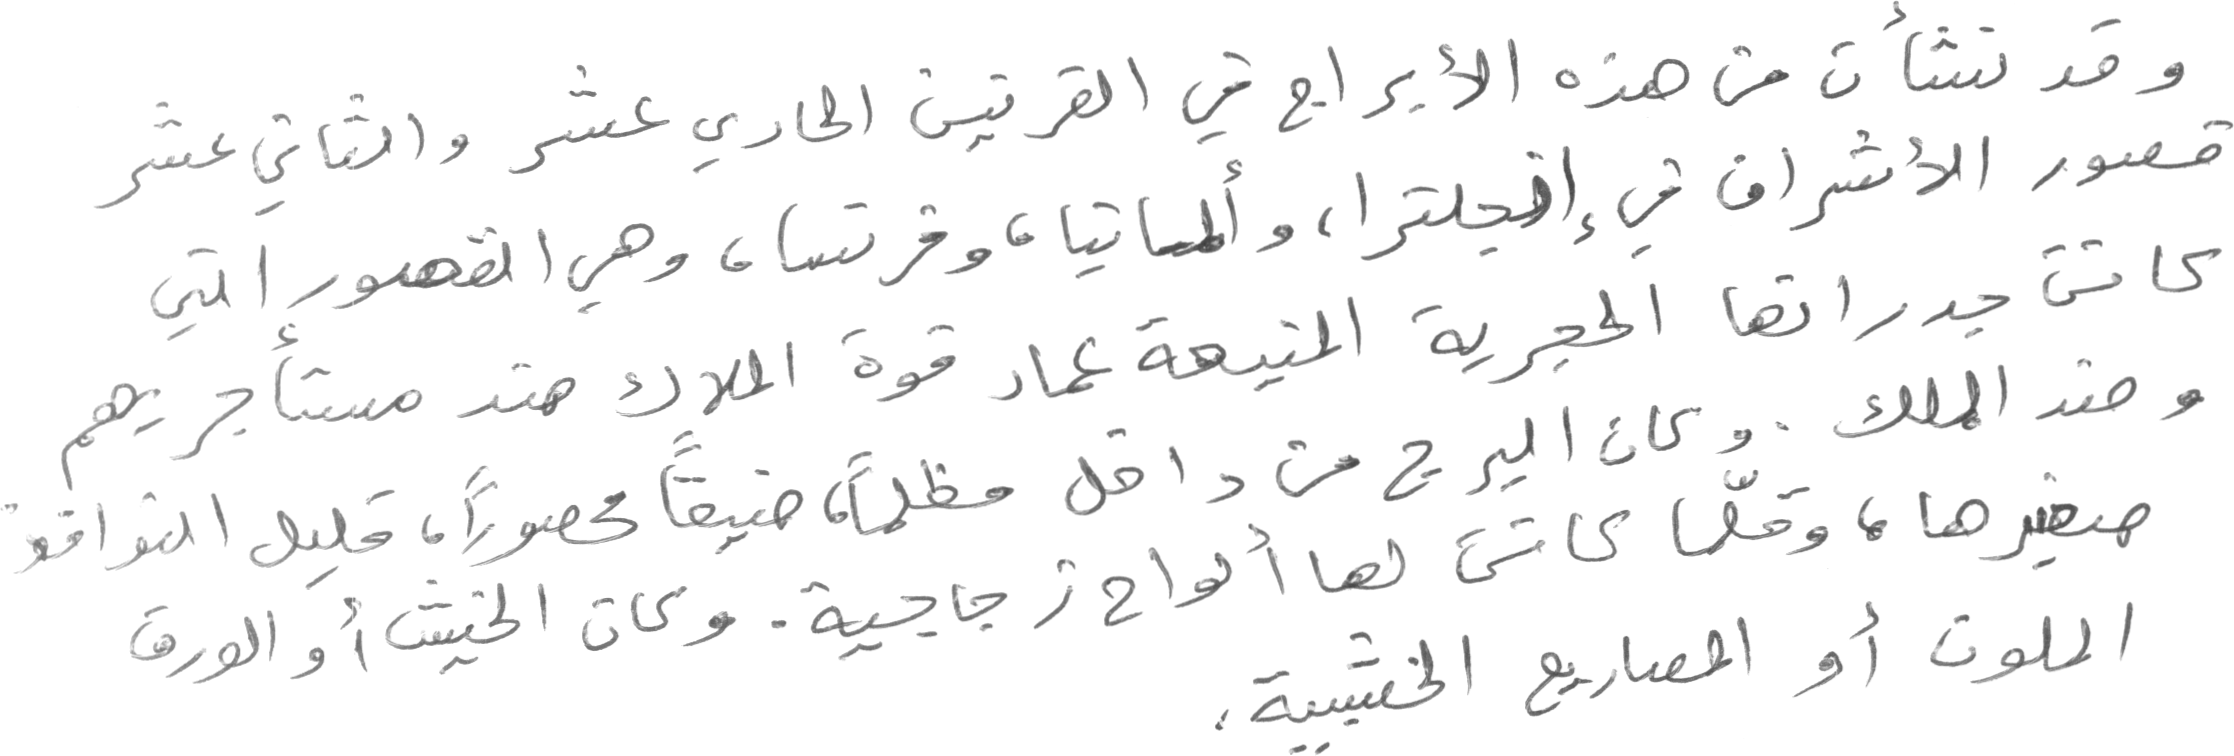 وقد نشأت من هذه الأبراج في القرنين الحادي عشر والثاني عشر
قصور الأشراف في إنجلترا، وألمانيا، وفرنسا، وهي القصور التي
كانت جدرانها الحجرية المنيعة عماد قوة الملاك ضد مستأجريهم
وضد الملك. وكان البرج من داخل مظلماً، ضيقاً محصوراً، قليل النوافذ
صغيرها، وقلّما كانت لها ألواح زجاجية. وكان الخيش أو الورق
الملون أو المصاريع الخشبية،